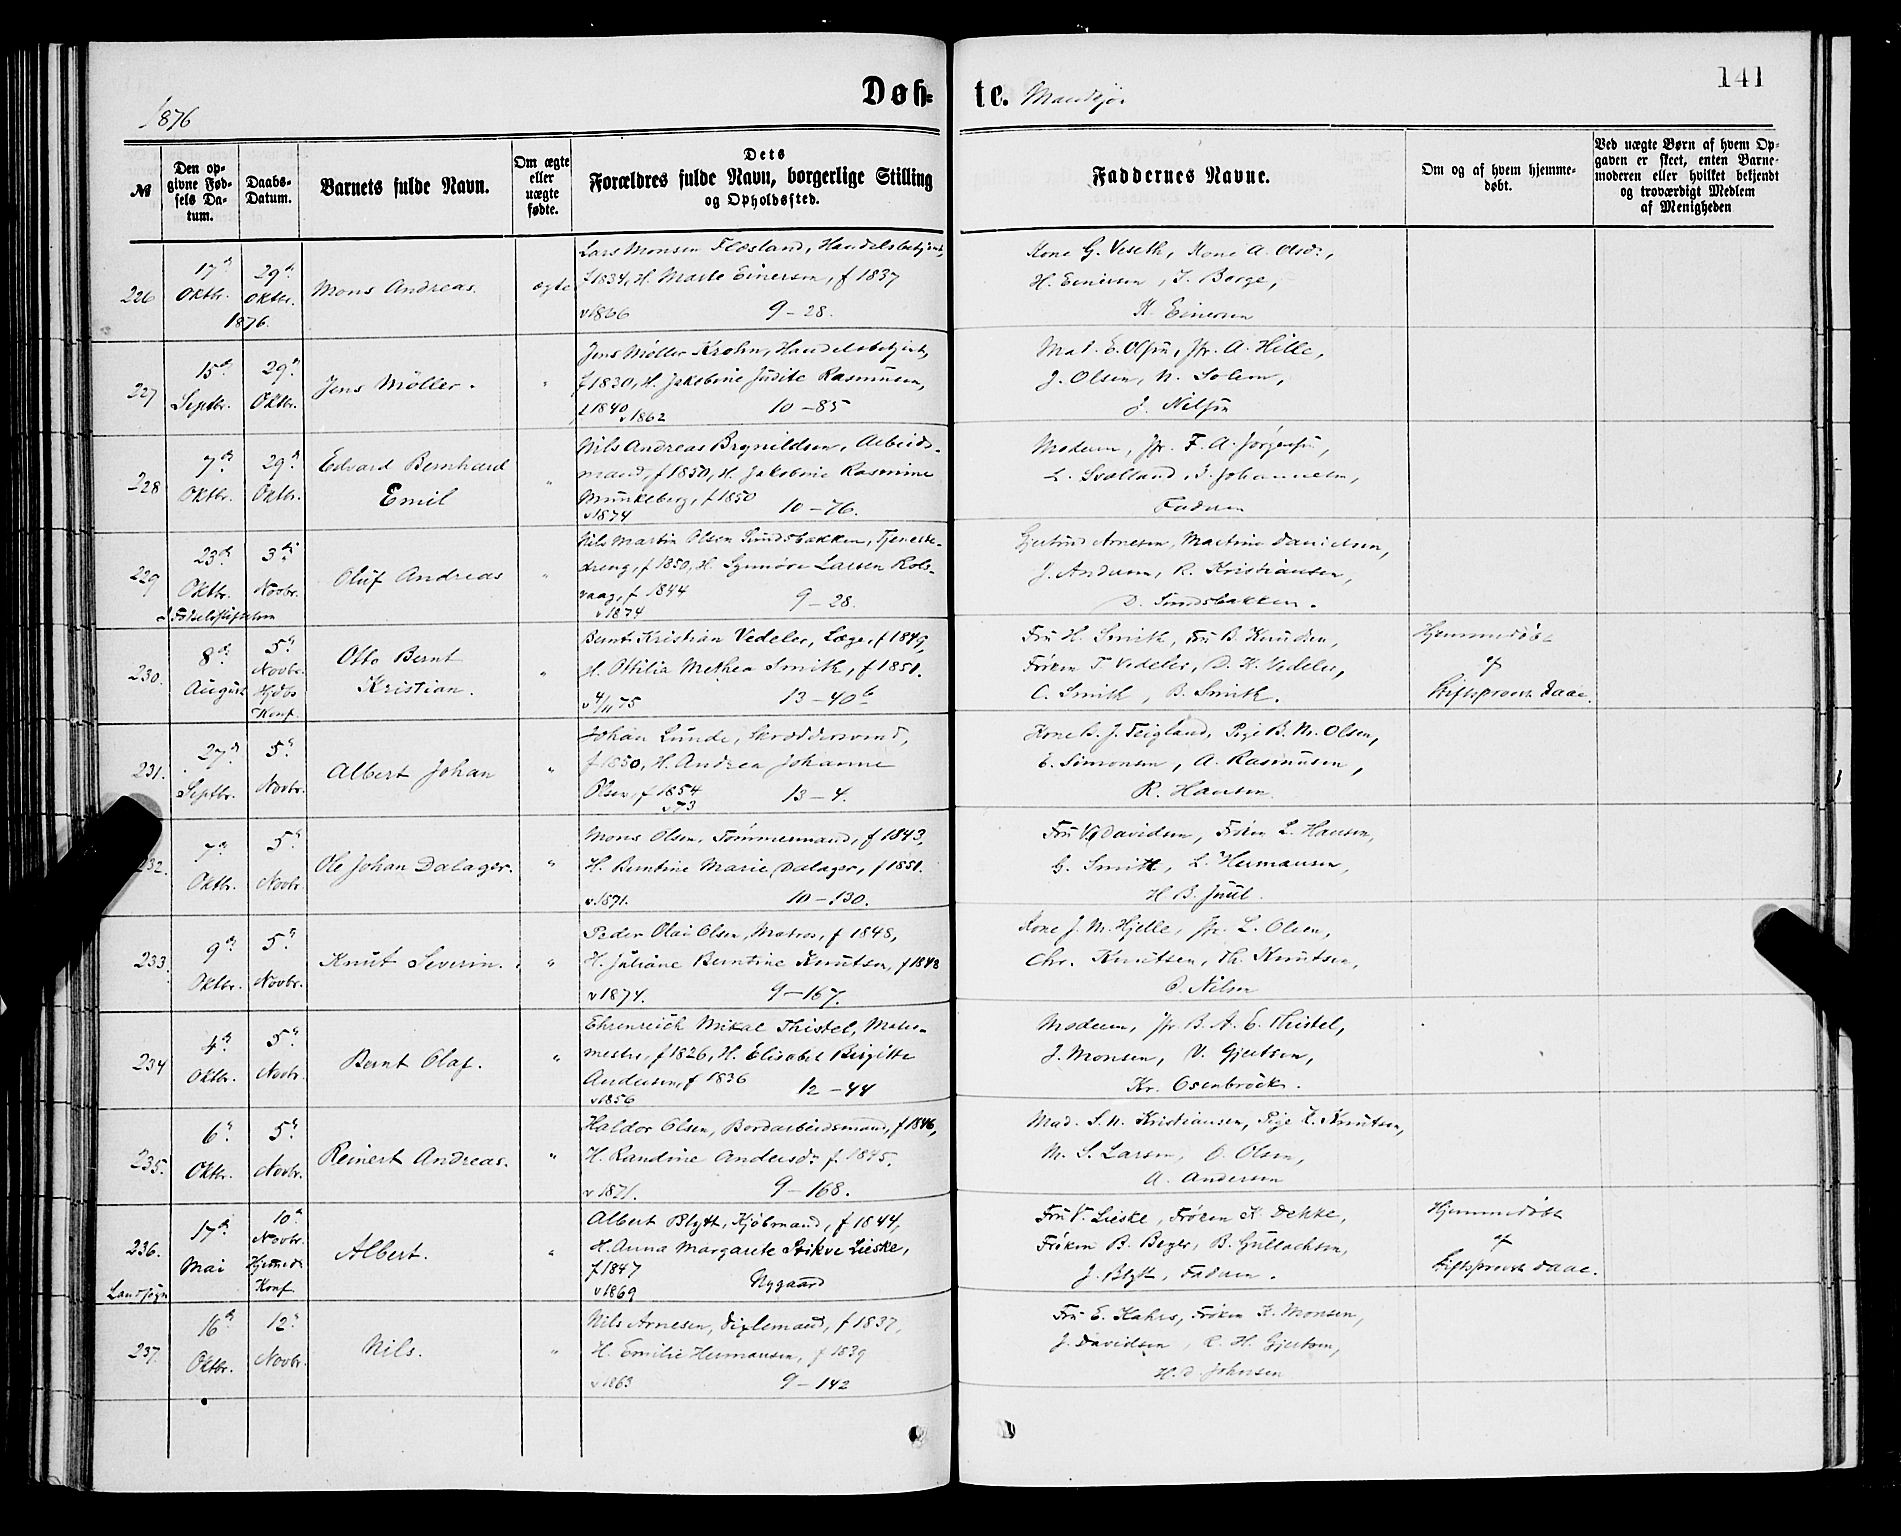 1876
Døb-
te. Mandkjøn
141
№
Den op-
givne Fød-
sels Da-
tum.
Daabs-
Datum.
Barnets fulde Navn.
Om ægte
eller
uægte
fødte.
Dets
Forældres fulde Navn, borgerlige Stilling
og Opholdssted.
Faddernes Navne.
Om og af hvem hjemme-
døbt.
Ved uægte Børn af hvem Op-
gaven er skeet, enten Barne-
moderen eller hvilket bekjendt
og troværdigt Medlem
af Menigheden
226
17de
Oktbr.
29de
Oktbr.
1876.
Mons Andreas.
ægte
Lars Monsen Flesland, Handelsbetjent,
f 1834, H. Marte Einersen, f 1837
v 1866 9-28.
Kone G. Veseth, Kone A. Olsd.,
H. Einersen, J. Borge,
K. Einersen
227
15de
Septbr.
29de
Oktbr.
Jens Möller.
"
Jens Møller Krohn, Handelsbetjent,
f 1830, H. Jakobine Judite Rasmusen,
f 1840
v 1862 10-85
Mad. E. Olsen, Jfr. A. Hille,
J. Olsen, N. Solem,
J. Nilsen
228
7de
Oktbr.
29de
Oktbr.
Edvard Bernhard
Emil
"
Nils Andreas Brynildsen, Arbeids-
mand, f 1850, H. Jakobine Rasmine
Munkeberg, f 1850
v 1874 10-76.
Moderen, Jfr. F. A. Jørgensen,
L. Svolland, J. Johannesen,
Faderen
229
23de
Oktbr.
I Fødselsstiftelsen
3die
Novbr.
Oluf Andreas
"
Nils Martin Olsen Sundsbakken, Tjeneste-
dreng, f 1850, H. Synnøve Larsen Rols-
vaag, f 1844
v 1874 9-28.
Gjertrud Arnesen, Martine Danielsen,
J. Andersen, R. Kristiansen,
O. Sundsbakken.
230.
8de
August
5te
Novbr.
Hjdbs
Konf.
Otto Bernt
Kristian.
"
Bernt Kristian Vedeler, Læge, f 1849,
H. Othilia Methea Smith, f 1851.
v 4/11 75 13-40b
Fru H. Smith, Fru B. Knudsen,
Frøken T. Vedeler, O. K. Vedeler,
C. Smith, B. Smith.
Hjemmedøbt
af
Stiftsprovst Daae.
231.
27de
Septbr.
5te
Novbr.
Albert Johan
"
Johan Lunde, Skræddersvend,
f 1850, H. Andrea Johanne
Olsen, f 1854
v 73 13-4.
Kone B. J. Feigland, Pige B. M. Olsen,
E. Simonsen, A. Rasmusen,
R. Hansen.
232.
7de
Oktbr.
5te
Novbr.
Ole Johan Dalager.
"
Mons Olsen, Tømmermand, f 1843,
H. Berntine Marie Dalager, f 1851.
v 1871. 10-130.
Fru Davidsen, Frøken L. Hansen,
G. Smith, L. Hermansen,
H. B. Juul.
233.
9de
Oktbr.
5te
Novbr.
Knut Severin.
"
Peder Olai Olsen, Matros, f 1848,
H. Juliane Berntine Knutsen, f 1848
v 1874. 9-167.
Kone J. M. Hjelle, Jfr. L. Olsen,
Chr. Knutsen, Th. Knutsen,
O. Nilsen
234
4de
Oktbr.
5te
Novbr.
Bernt Olaf.
"
Ehrenreich Mikal Thistel, Maler-
mester, f 1826, H. Elisabet Birgitte
Andersen, f 1836
v 1856 12-44
Moderen, Jfr. B. A. E. Thistel,
J. Monsen, V. Gjertsen,
Kr. Osenbröck.
235.
6te
Oktbr.
5te
Novbr.
Reinert Andreas.
"
Haldor Olsen, Bordarbeidsmand, f 1846,
H. Randine Andersdr. f. 1845.
v 1871. 9-168.
Mad. S. N. Kristiansen, Pige K. Knutsen,
M. S. Larsen, O. Olsen,
A. Andersen
236.
Landsogn
17de
Mai
10de
Novbr.
Hjemmed.
Konf.
Albert.
"
Albert Blytt, Kjøbmand, f 1844,
H. Anna Margarete Lieske,
f 1847
v 1869 Nygaard
Fru V. Lieske, Frøken K. Dekke,
Frøken B. Beyer, B. Gullachsen,
J. Blytt, Faderen.
Hjemmedøbt
af
Stiftsprovst Daae.
237.
16de
Oktbr.
12te
Novbr.
Nils.
"
Nils Arnesen, Dixlemand, f 1837,
H. Emilie Hermansen, f 1839
v 1863 9-142
Fru E. Kahrs, Frøken K. Monsen,
J. Davidsen, C. H. Gjertsen,
H. D. Johnsen